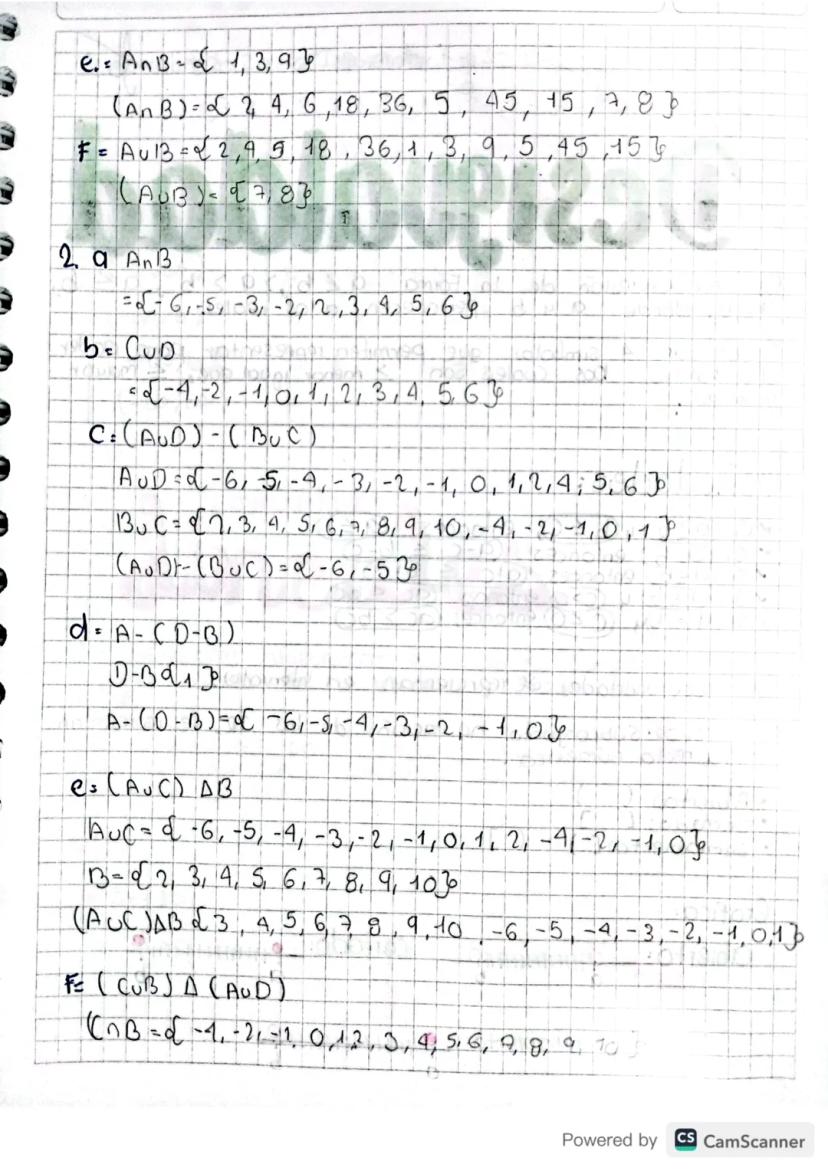 e.= A∩B = { 1, 3, 9}
(A∩B) = { 2, 4, 6, 18, 36, 5, 45, 15, 7, 8}
F = A∪B = {2, 4, 5, 18, 36, 1, 3, 9, 5, 45, 15}
(A∪B) = {7, 8}
2. a A∩B
= {-6, -5, -3, -2, 2, 3, 4, 5, 6}
b= C∪D
= {-4, -2, -1, 0, 1, 2, 3, 4, 5, 6}
C = (A∪D) - (B∪C)
A∪D = {-6, -5, -4, -3, -2, -1, 0, 1, 2, 4, 5, 6}
B∪C = {2, 3, 4, 5, 6, 7, 8, 9, 10, -4, -2, -1, 0, 1}
(A∪D)-(B∪C) = {-6, -5}
d = A - (D-B)
D-B {1}
A-(D-B) = { -6, -5, -4, -3, -2, -1, 0}
e = (A∪C) ΔB
A∪C = { -6, -5, -4, -3, -2, -1, 0, 1, 2, -4, -2, -1, 0}
B = {2, 3, 4, 5, 6, 7, 8, 9, 10}
(A∪C)ΔB {3, 4, 5, 6, 7, 8, 9, 10, -6, -5, -4, -3, -2, -1, 0, 1}
F= (C∪B) Δ (A∪D)
C∩B = { -4, -2, -1, 0, 1 2, 3, 4, 5, 6, 7, 8, 9, 10}
Powered by CS CamScanner